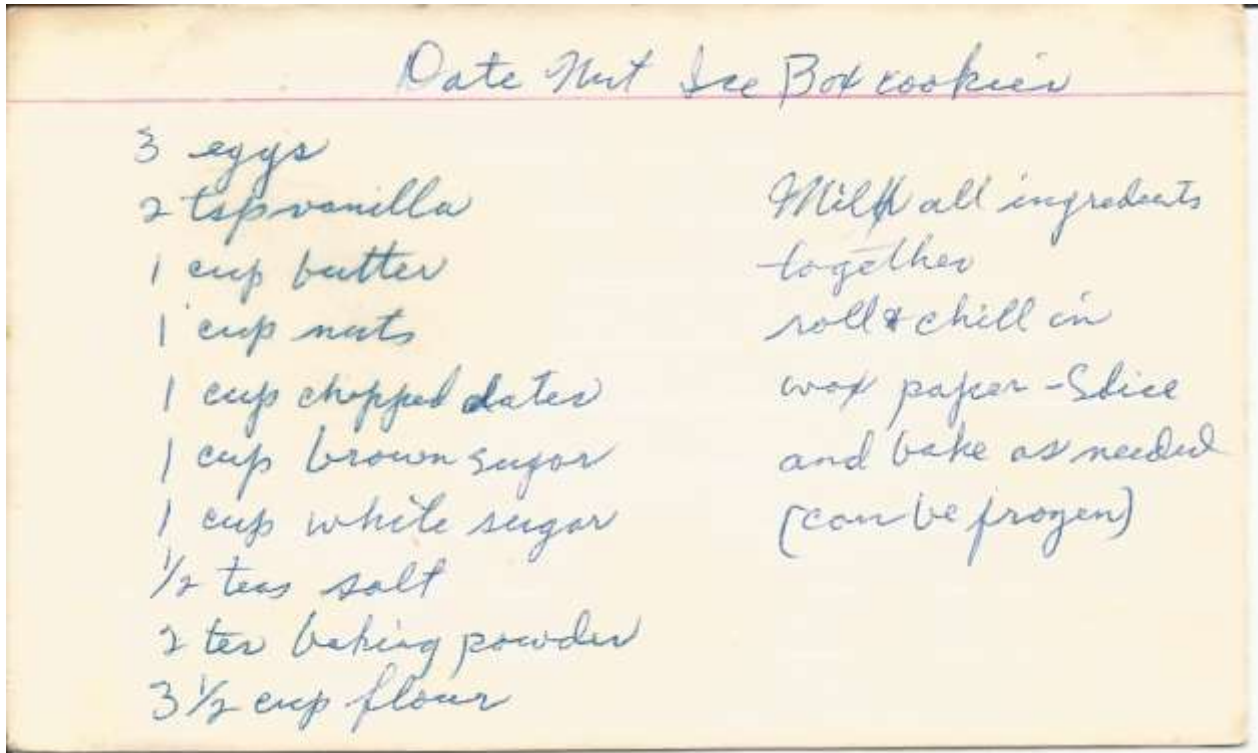 Date Nut Ice Box cookies
3 eggs
2 tsp vanilla
1 cup butter
1 cup nuts
1 cup chopped dates
1 cup brown sugar
1 cup white sugar
1/2 teas salt
2 tes baking powder
3 1/2 cup flour
all ingredients
together
roll & chill in
wax paper - Slice
and bake as needed
(can be frozen)